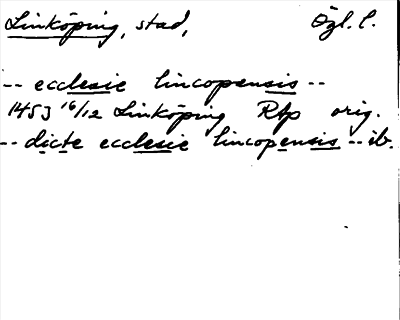 Linköping, stad, Ögl. l.
-- ecclesie lincopensis --
1453 16/12 Linköping Rbp orig.
-- dicte ecclesie lincopensis -- ib.